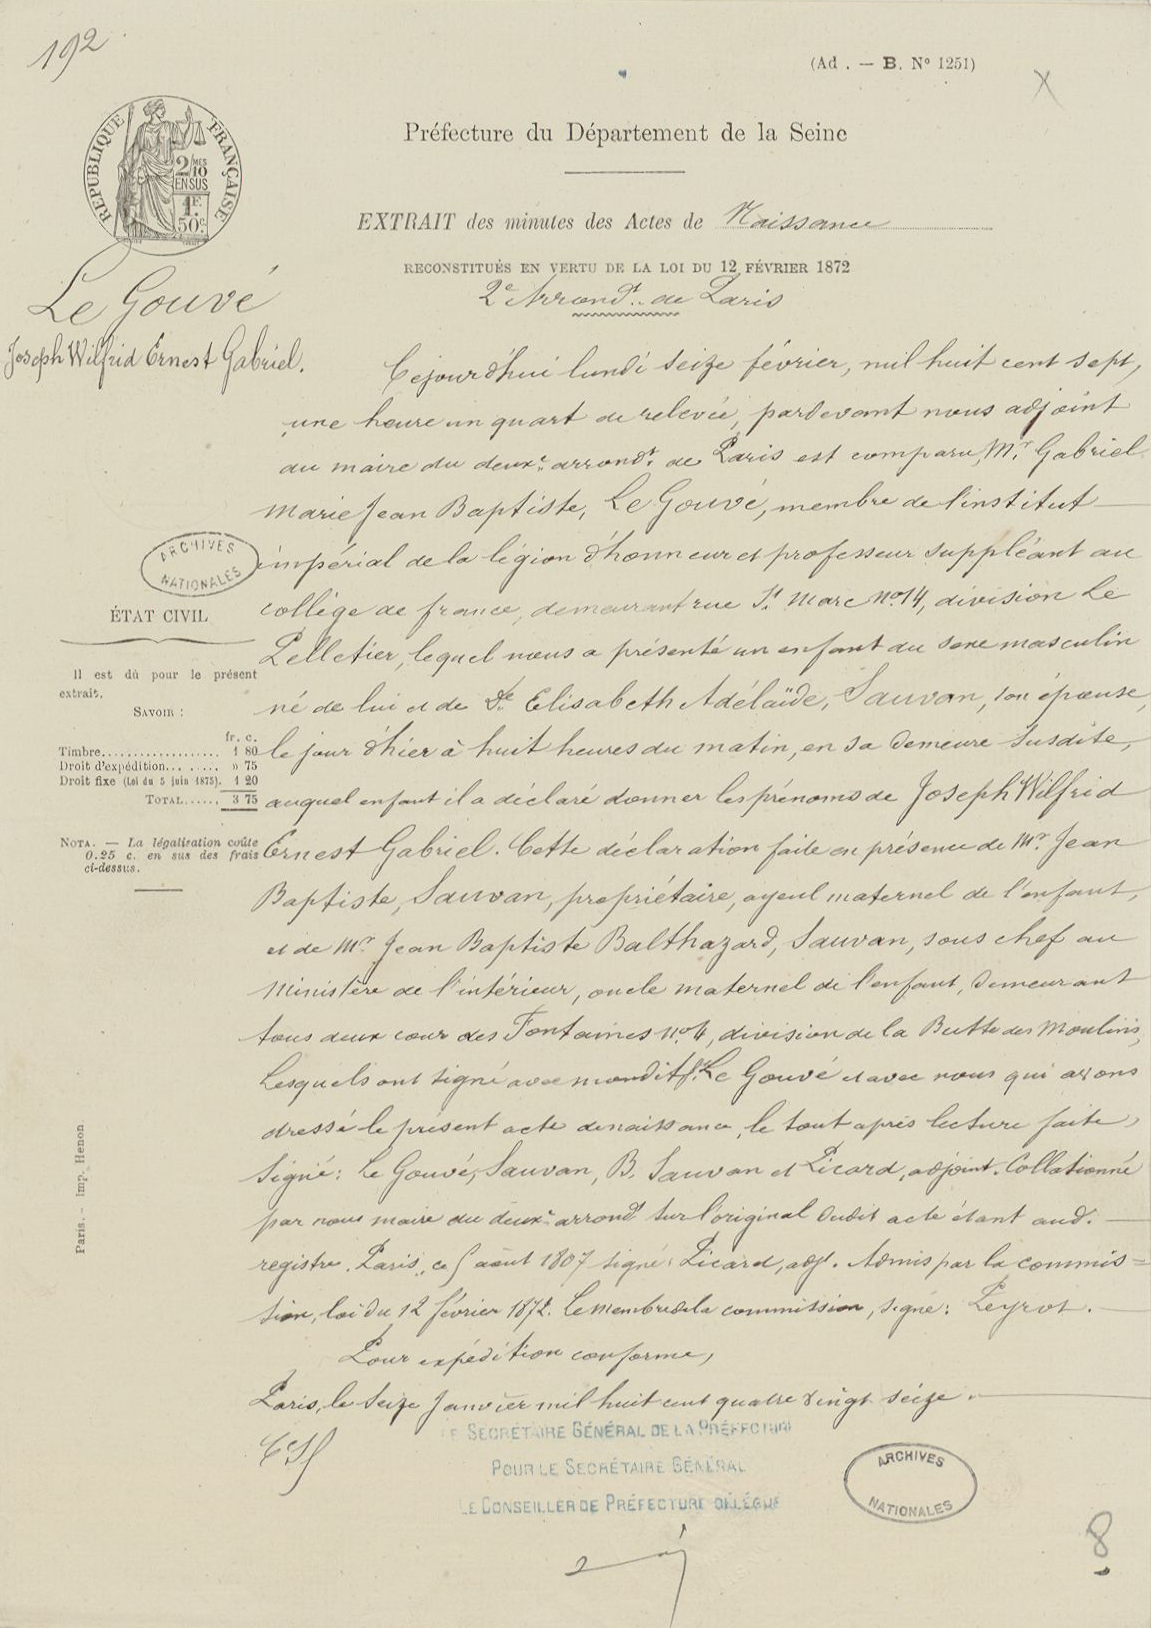 192
(Ad. — B. N° 1251)
X
RÉPUBLIQUE FRANÇAISE
2/10 MES
EN SUS
1F.
50c.
Préfecture du Département de la Seine
EXTRAIT des minutes des Actes de Naissance
RECONSTITUÉS EN VERTU DE LA LOI DU 12 FÉVRIER 1872
2e Arrondt. de Paris
Le Gouvé
Joseph Wilfrid Ernest Gabriel.
Cejourd'hui lundi seize février, mil huit cent sept,
une heure un quart de relevée, pardevant nous adjoint
au maire du deuxe. arrondt. de Paris est comparu, Mr. Gabriel
marie Jean Baptiste, Le Gouvé, membre de l'institut
impérial de la légion d'honneur et professeur suppléant au
collége de france, demeurant rue St. Marc no. 14, division Le
Pelletier, lequel nous a présenté un enfant du sexe masculin
né de lui et de De. Elisabeth Adélaïde, Sauvan, son épouse,
le jour d'hier à huit heures du matin, en sa demeure susdite,
auquel enfant il a déclaré donner les prénoms de Joseph Wilfrid
Ernest Gabriel. Cette déclaration faite en présence de Mr. Jean
Baptiste, Sauvan, propriétaire, ayeul maternel de l'enfant,
et de Mr. Jean Baptiste Balthazard, Sauvan, sous chef au
Ministère de l'intérieur, oncle maternel de l'enfant, demeurant
tous deux cour des Fontaines no. 4, division de la Butte des Moulins,
Lesquels ont signé avec mondit Sr. Le Gouvé et avec nous qui avons
dressé le présent acte de naissance, le tout après lecture faite,
Signé: Le Gouvé, Sauvan, B. Sauvan et Picard, adjoint. Collationné
par nous maire du deuxe. arrondt. sur l'original dudit acte étant aud.
registre. Paris, ce 5 août 1807 signé: Picard, adj. Admis par la commis=
sion, loi du 12 février 1872. Le membre de la commission, signé: Peyrot.
Pour expédition conforme,
Paris, le Seize Janvier mil huit cent quatre vingt seize.
ARCHIVES
NATIONALES
ÉTAT CIVIL
Il est dû pour le présent
extrait.
SAVOIR :
fr. c.
Timbre.................. 1 80
Droit d'expédition... ..... » 75
Droit fixe (Loi du 5 juin 1875). 1 20
TOTAL...... 3 75
NOTA. — La légalisation coûte
0.25 c. en sus des frais
ci-dessus.
Paris. - Imp. Henon
LE SECRÉTAIRE GÉNÉRAL DE LA PRÉFECTURE
POUR LE SECRÉTAIRE GÉNÉRAL
LE CONSEILLER DE PRÉFECTURE DÉLÉGUÉ
ARCHIVES
NATIONALES
8